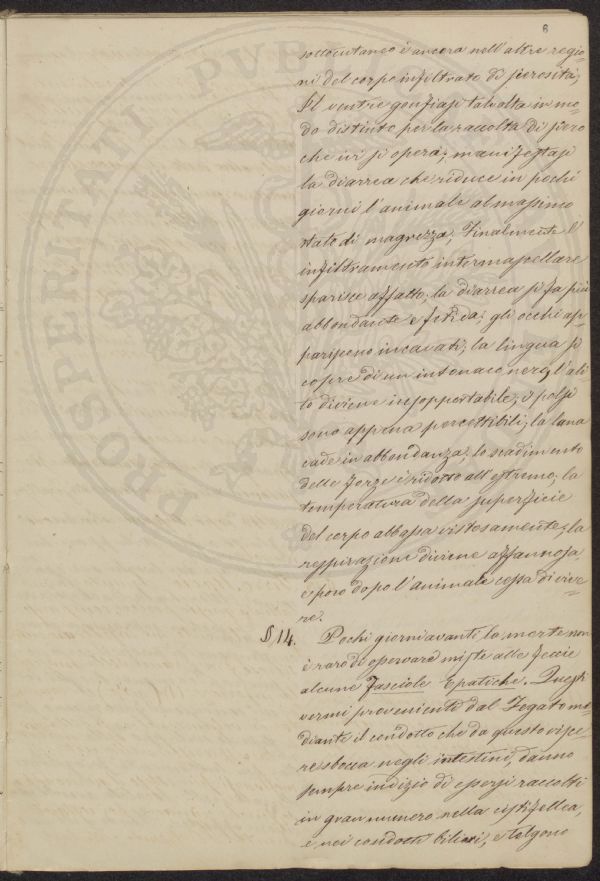 8
sottocutaneo è ancora nell'altre regio=
ni del corpo infiltrato di sierosità;
Il ventre gonfiasi talvolta in mo=
do distinto per la raccolta di siero
che ivi si opera; manifestasi
la diarrea che riduce in pochi
giorni l'animale al massimo
stato di magrezza; Finalmente l'
infiltramento intermascellare
sparisce affatto; la diarrea si fa più
abbondante e fetida; gli occhi ap=
pariscono incavati; la lingua si
copre di un intonaco nero, l'ali
to diviene insopportabile; i polsi
sono appena percettibili; la lana
cade in abbondanza; lo scadimento
delle forze è ridotto all'estremo; la
temperatura della superficie
del corpo abbassa vistosamente; la
respirazione diviene affannosa,
e poco dopo l'animale cessa di vive=
re.
§ 14. Pochi giorni avanti la morte non
è raro di osservare miste alle feccie
alcune Fasciole Epatiche. Questi
vermi provenienti dal Fegato me=
diante il condotto che da questo visce=
re sbocca negli intestini, danno
sempre indizio di essersi raccolti
in gran numero nella cistifellea,
e nei condotti biliari, e tolgono
PROSPERITATI PVBLICAE